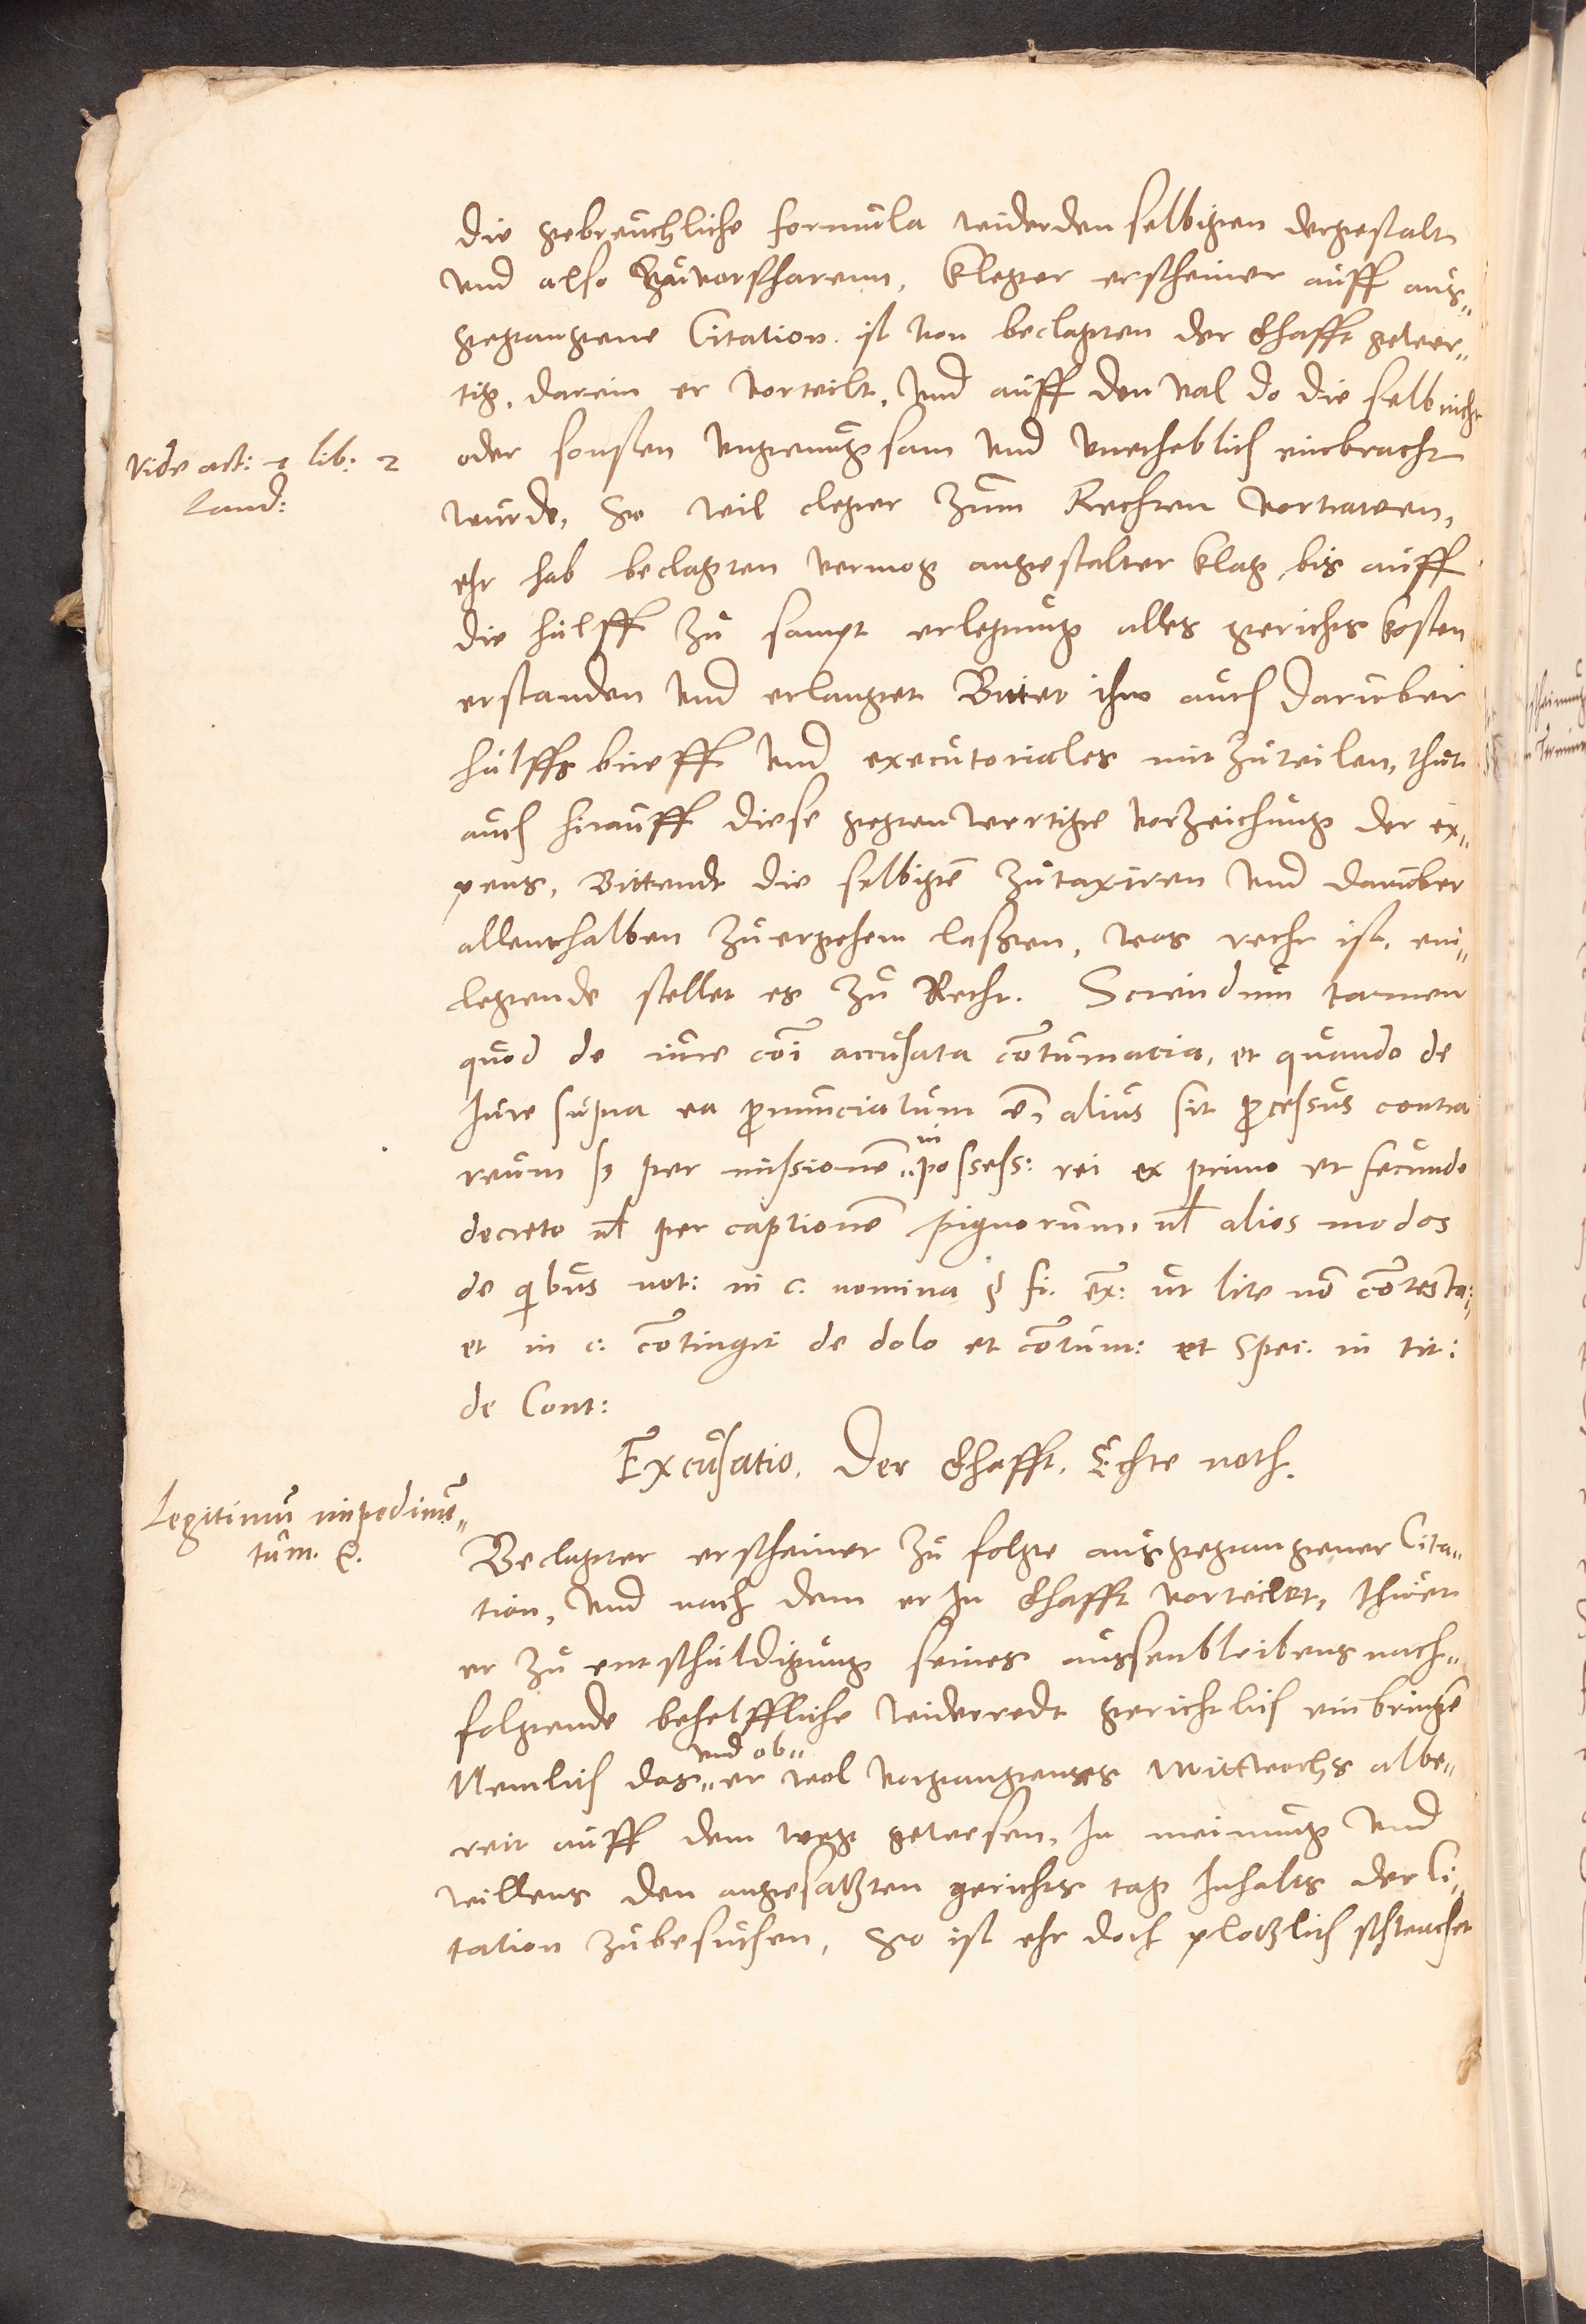 die gebreuchliche formula widerden selbigen dergestalt
und also zuvorfharenn, Kleger erscheinet auff aus„
gegangene Citation ist von beclagten der Ehafft gewer„
tig, darein er vorteilt, und auff den val do die selb nicht
Vide art: 1 lib: 2
Land:
oder sonsten ungenugsam und unerheblich einbracht
wurde, So wil cleger zum Rechten vortrawen,
ehr hab beclagten vermog angestalter klag, bis auff
die hulff zu sampt erlegung alles gerichts kosten
erstanden und erlanget Bittet ihm auch daruber
hulffs brieff und executoriales mit zuteilen, thut
auch hirauff diese gegenwertige vorzeichung der ex„
pens, Bittendt die selbigē zutaxiren und daruber
allenthalben zuergehem laßen, was recht ist, ein„
legende stellet es zu Recht. Sciendum tamen
quod de iure cōi accusata cōtumacia, et quando de
Iure supra ea pronunciatum ē, alius sit processus contra
reum sz per missionē in possess: rei ex primo et secundo
decreto vl per captionē pignorum, vl alios modos
de quibus not: in c. nomina § fi. ex: ut lite nō cōtesta:
et in c: cōtingit de dolo et cōtum: et Spei. in tit:
de Cont:
Excusatio. Der Ehafft. Echte noth.
Legitimū impedimē„
tum. &.
Beclagter erscheinet zu folge ausgegangener Cita„
tion, und nach dem er In Ehafft vorteilet, thuet
er zu entschuldigung seines aussenbleibens nach„
folgende behelffliche widerredt gerichtlich einbringē
Nemlich das und ob„ er wol vorgangenes Mittwochs albe„
reit auff dem weg gewesen, In meinung und
willens den angesatzten gerichts tag Inhalts der Ci„
tation zubesuchen, So ist ehr doch plotzlich schwacheit